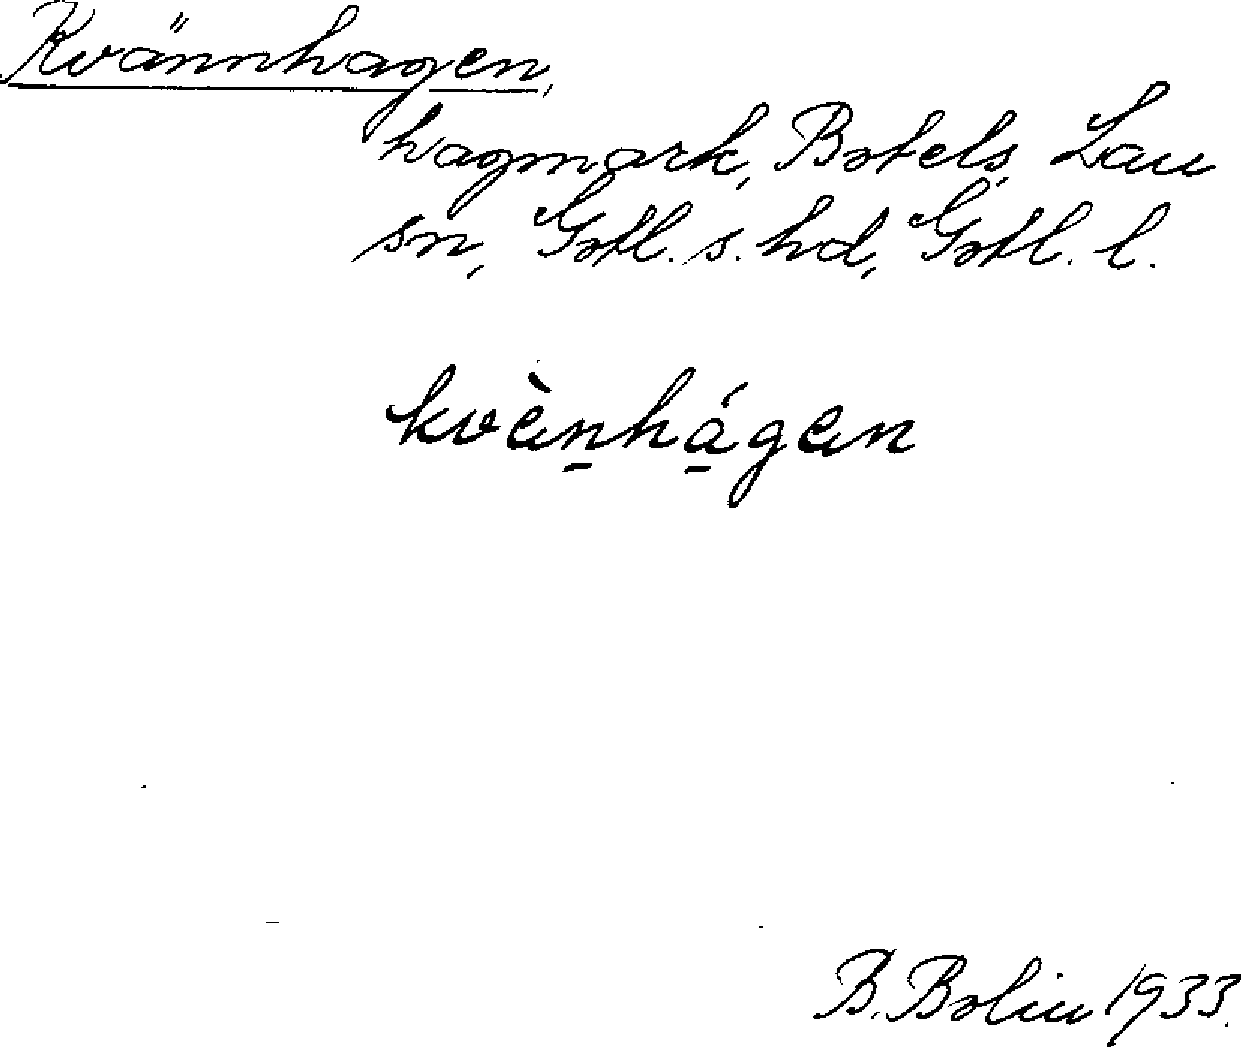 Kvännhagen,
hagmark, Botels, Lau
sn, Gotl. s. hd, Gotl. l.
kvàn̠há̠gan
B. Bolin 1933.